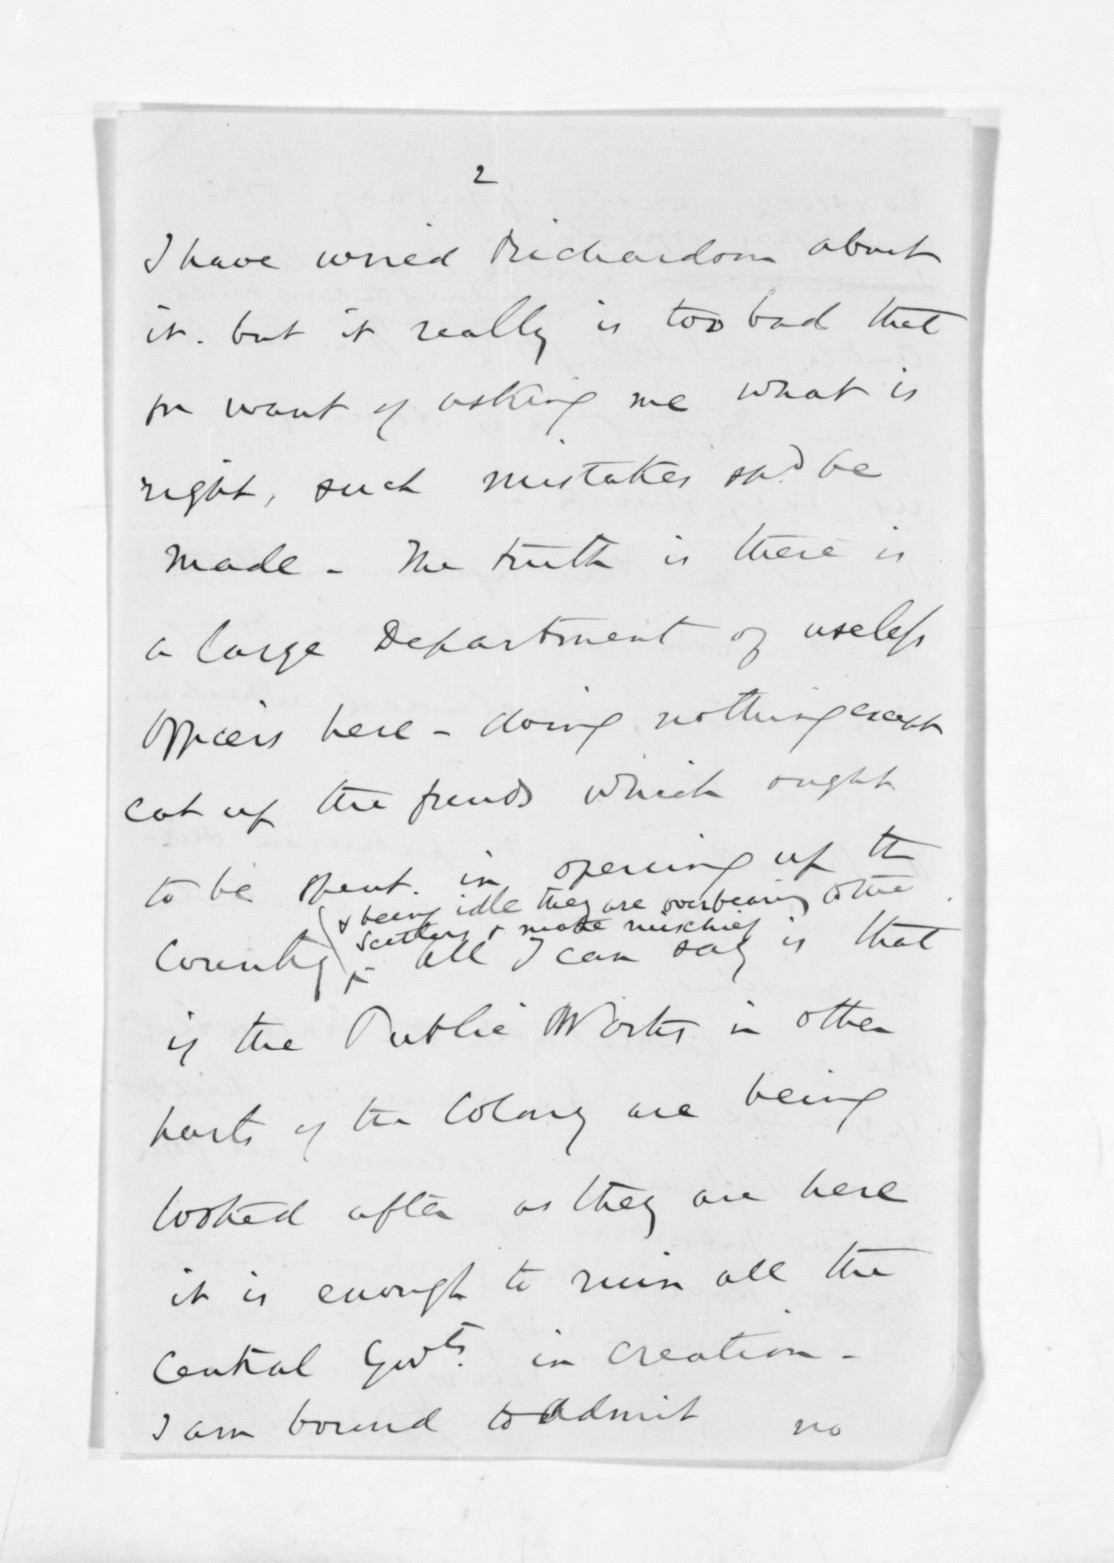 2
I have wired Richardson about
it. but it really is too bad that
for want of asking me what is
right, such mistakes shd be
made - The truth is there is
a large Department of useless
Officers here - doing nothing except
eat up the funds which ought
to be spent. in opening up the
& being idle they are overbearing to the
settlers & make mischief
Country - all I can say is that
if the Public Works in other
parts of the Colony are being
looked after as they are here
it is enough to ruin all the
Central Govts. in creation -
I am bound to admit no